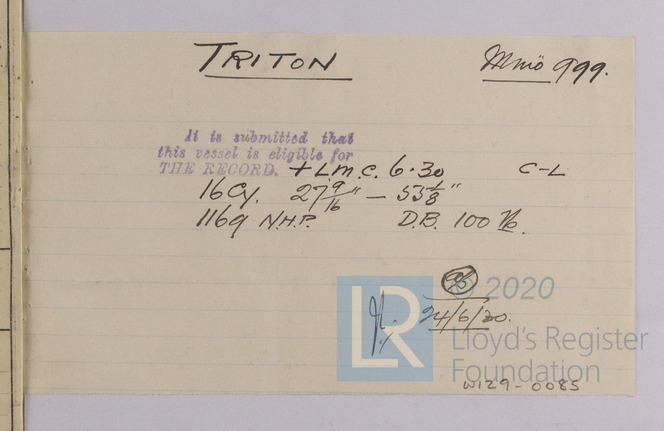 TRITON
Mmö 999.
It is submitted that
this vessel is eligible for
THE RECORD. + L.M.C. 6.30 C-L
16 Cy. 27 9/16" – 55 1/8"
1169 N.H.P. D.B. 100 lb.
24/6/30.
© 2020
LR
Lloyd's Register
Foundation
W129-0085